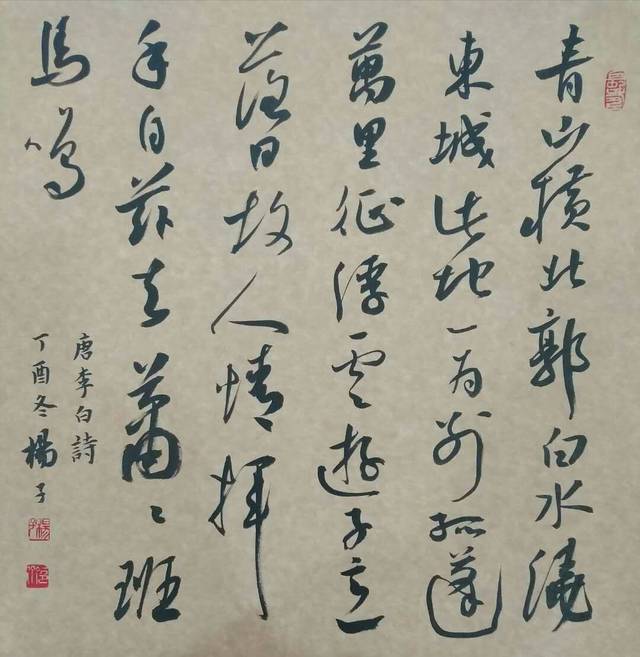 青山橫北郭白水繞
東城此地一为别孤蓬
萬里征浮雲遊子意
落日故人情揮
手自茲去蕭々班
馬鳴
唐李白詩
丁酉冬楊子